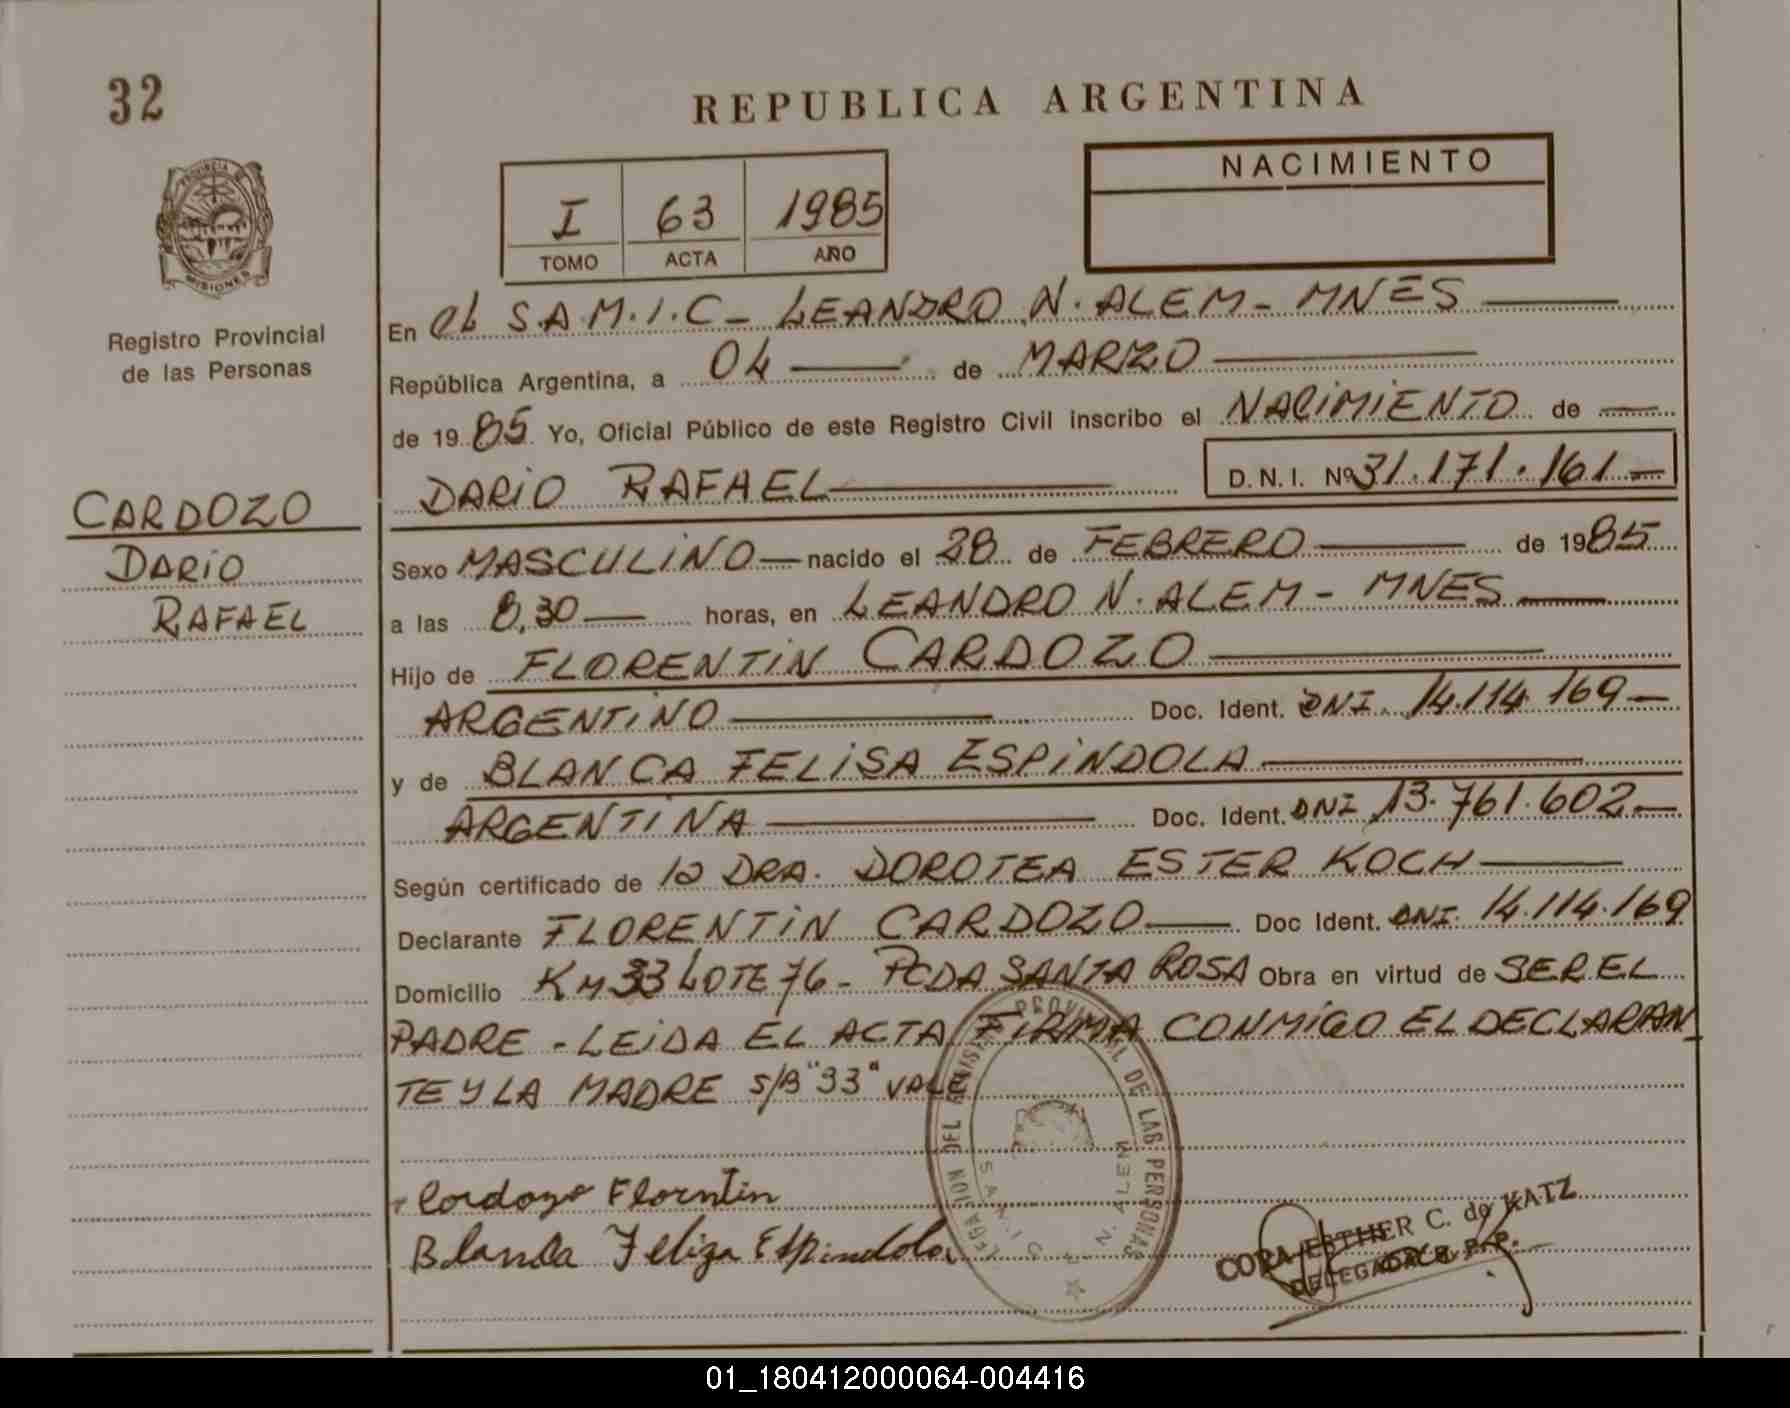 32
REPUBLICA ARGENTINA
PROVINCIA DE
MISIONES
Registro Provincial
de las Personas
I 63 1985
TOMO ACTA AÑO
NACIMIENTO
En el S.A.M.I.C - LEANDRO N. ALEM - MNES
República Argentina, a 04 de MARZO
de 19 85 Yo, Oficial Público de este Registro Civil inscribo el NACIMIENTO de
DARIO RAFAEL D.N.I. Nº 31.171.161.-
CARDOZO
DARIO
RAFAEL
Sexo MASCULINO nacido el 28 de FEBRERO de 19 85
a las 8,30 horas, en LEANDRO N. ALEM - MNES
Hijo de FLORENTIN CARDOZO
ARGENTINO Doc. Ident. DNI. 14.114.169-
y de BLANCA FELISA ESPINDOLA
ARGENTINA Doc. Ident. DNI 13.761.602.-
Según certificado de la DRA. DOROTEA ESTER KOCH
Declarante FLORENTIN CARDOZO Doc Ident. DNI. 14.114.169
Domicilio KM 33 LOTE 76 - PCDA SANTA ROSA Obra en virtud de SER EL
PADRE - LEIDA EL ACTA FIRMA CONMIGO EL DECLARAN_
TE Y LA MADRE S/B "33" VALE
Cardozo Florentin
Blanca Feliza Espindola
DELEGACION DEL REGISTRO PROVINCIAL DE LAS PERSONAS
S.A.M.I.C. L. N. ALEM
CORA ESTHER C. de KATZ
DELEGADA R.P.P.
01_180412000064-004416